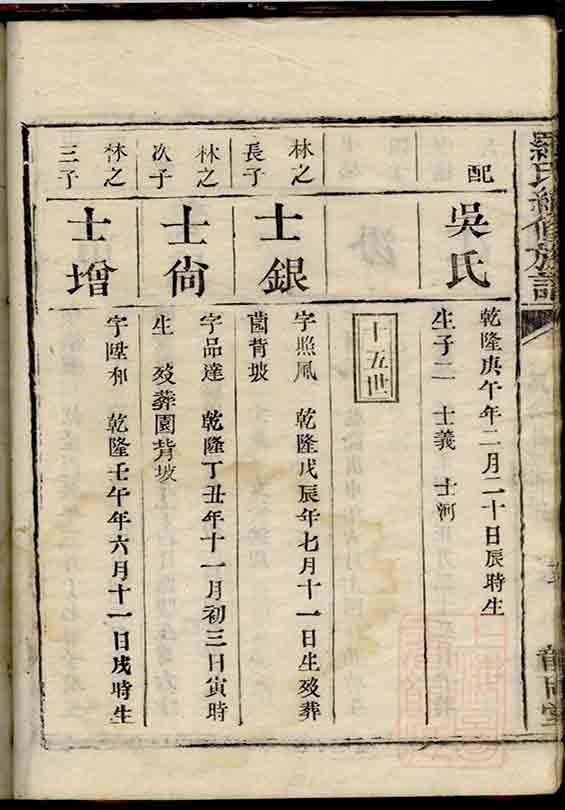 羅氏續修族譜
配
吳氏
乾隆庚午年二月二十日辰時生
生子二 士義 士河
十五世
林之
長子
士銀
字照鳳 乾隆戊辰年七月十一日生歿葬
園背坡
林之
次子
士尙
字品達 乾隆丁丑年十一月初三日寅時
生 歿葬園背坡
林之
三子
士增
字陞和 乾隆壬午年六月十一日戌時生